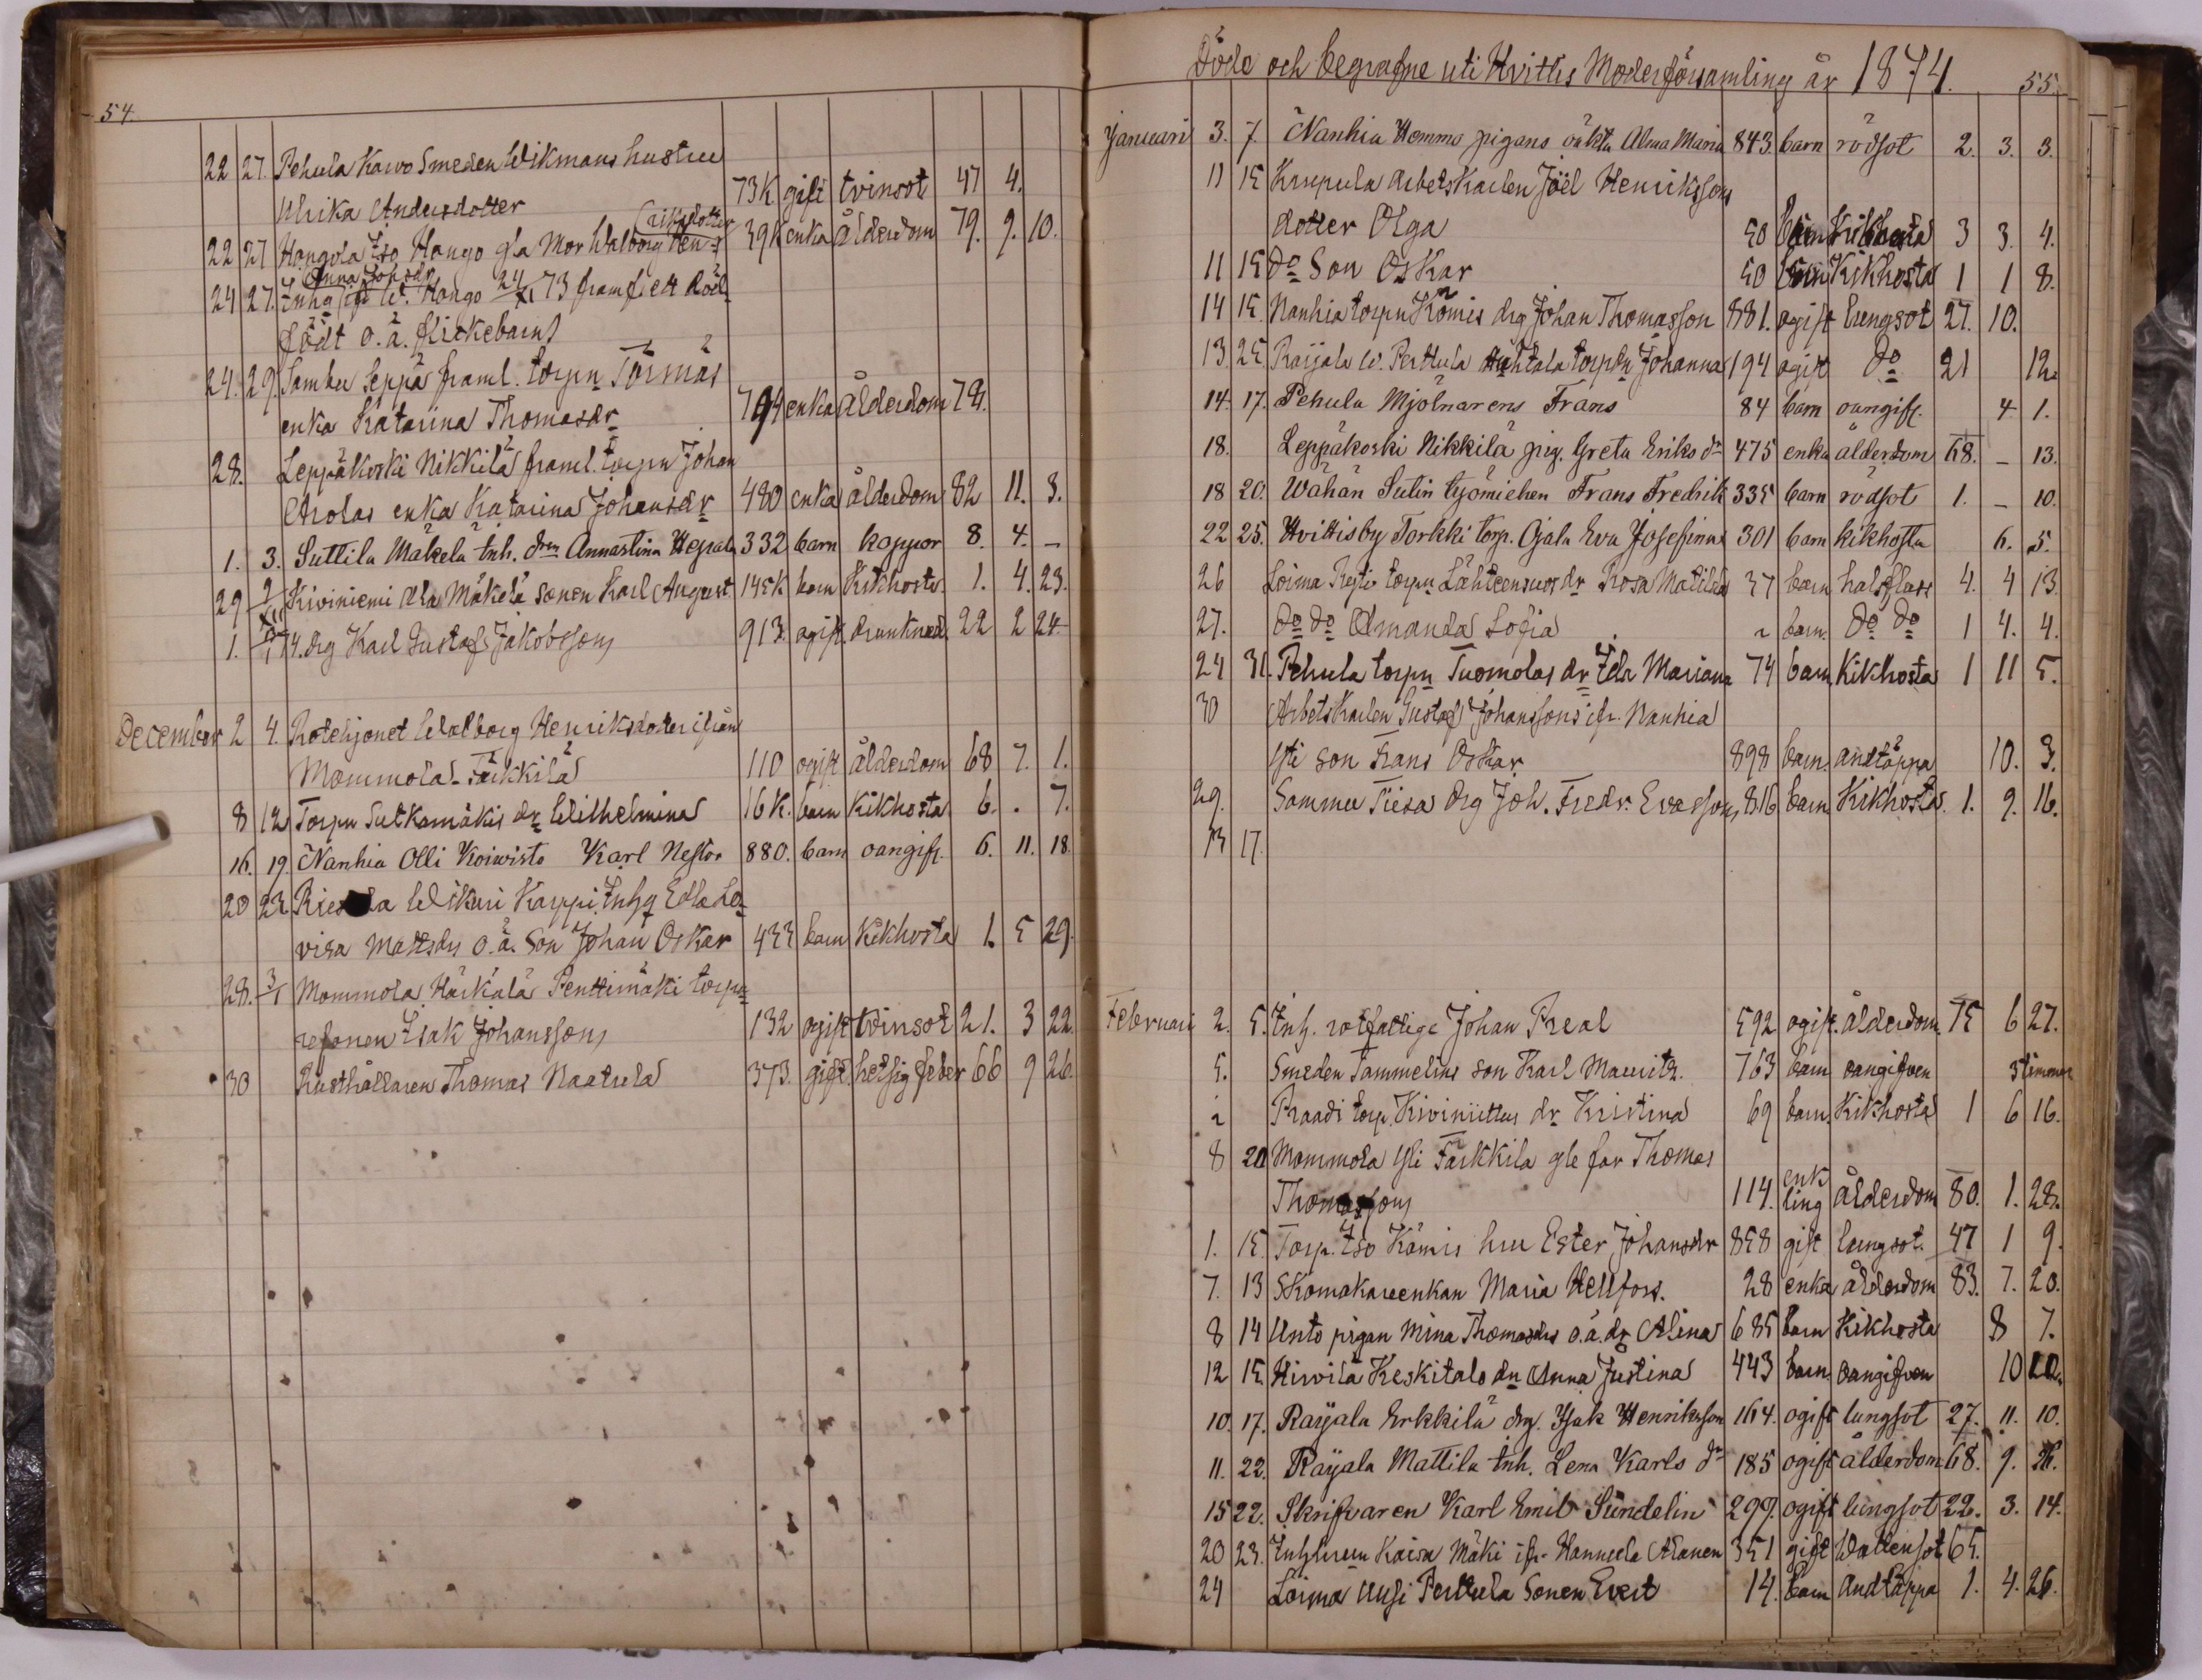 54.
22 27. Pehula Kawo Smeden Wikmans hustru
Ulrika Andersdotter 73K gift tvinsot 47 4.
riksdotter
22 27 Hangola Iso Hango gla Mor Walborg Hen- 39K enka ålderdom 79. 9. 10.
Anna Johsdr
24 27. Inhg ifr W. Hango 24/XI 73 framf. ett död
födt o.ä. flickebarn
24. 29. Samku Seppä framl. torpn Törmäs
enka Katarina Thomasdr 794 enka ålderdom 78.
28. Leppäkoski Nikkilä framl. torpn Johan
Arolas enka Katarina Johansdr 480 enka ålderdom 82 11. 3.
1. 3. Suttila Mäkelä inh. drn Annastina Heprala 332 barn koppor 8. 4. –
29 2/XII Kiviniemi Ala Mäkelä sonen Karl August 145K barn Kikhosta 1. 4. 23.
1. 74. drg Karl Gustaf Jakobsson 913. ogift drunknad 22 2 24.
December 2 4. Rotehjonet Walborg Henriksdotter ifrån
Mommola Tärkkilä 110 ogift ålderdom 68 7. 1.
8 12 Torpn Sutkamäkis dr Wilhelmina 16K. barn Kikhosta 6. . 7.
16. 19. Nanhia Olli Koiwisto Karl Nestor 880. barn oangif. 6. 11. 18
20 23 Wikari Karppi Inhg Edla Lo-
visa Mattsdrs o.ä. Son Johan Oskar 433 barn Kikhosta 1. 5 29.
28. 3/1 Mommola Härkälä Penttimäki torpn
refonen Isak Johansson 132 ogift tvinsot 21. 3 22.
30 Rusthållaren Thomas Naatula 373. gift. hetsig feber 66 9 26.
Döde och begrafne uti Hvittis Moderförsamling år 1874. 55.
Januari 3. 7. Nanhia Hemmo pigans oäkta Alma Maria 843 barn rödsot 2. 3. 3.
11 15 Karpula arbetskarlen Joël Henrikssons
dotter Olga 50 barn Kikhosta 3 3. 4.
11 15 Do Son Oskar 50 barn Kikhosta 1 1 8.
14 15. Nanhia torpn Kömis drg Johan Thomasson 881. ogift lungsot 27. 10.
13 25 Raijala W. Perttula Huhtala torpdr Johanna 194 ogift Do 21 12.
14. 17. Pehula Mjölnarens Frans 84 barn oangif. 4. 1.
18. Leppäkoski Nikkilä pig. Greta Eriks dr 475 enka ålderdom 68. – 13.
18 20. Wähän Sutin työmiehen Frans Fredrik 335 barn rödsot 1. – 10.
22 25. Hvittisby Torkki torp. Ojala Eva Josefina 301 barn kikhosta 6. 5.
26 Loima torpn Lähteensuos dr Rosa Matilda 37 barn halsfluss 4. 4 13.
27. Do Do Amanda Sofia barn. Do Do 1 4. 4.
24 31. Pehula torpn Tuomolas dr Ida Mariana 74 barn Kikhosta 1 11 5.
30 Arbetskarlen Gustaf Johanssons ifr. Nanhia
Yli son Frans Oskar 898 barn. andtäppa 10. 3.
29. Sammu Tiisa drg Joh. Fredr. Evasson 816 barn Kikhosta. 1. 9. 16.
13 17.
Februari 2. 5. Inh. rotfattige Johan Preal 592 ogift. ålderdom. 75 6 27.
5. Smeden Tammelins son Karl Mauritz. 763 barn oangifven 3 timmar
Praadi torp. Kiviniittus dr Kristina 69 barn. Kikhosta 1 6 16.
8 20 Mommola Yli Tärkkilä gle far Thomas
Thomasson 114. enk
ling ålderdom 80. 1. 28.
1. 15. Torp. Iso Kämis hru Ester Johansdr 858 gift lungsot. 47 1 9.
7. 13 Skomakareenkan Maria Hellfors. 28 enka ålderdom 83. 7. 20.
8 14 Unto pigan Mina Thomasdrs o.ä. dr Alina 685 barn Kikhosta 8 7.
12 15. Hirvilä Keskitalo dn Anna Justina 443 barn oangifven 10
10. 17. Raijala Erkkilä drg. Isak Henriksson 164. ogift lungsot 27. 11. 10.
11. 22. Raijala Mattila inh. Lena Karls dr 185 ogift ålderdom 68. 9. 26.
15 22. Skrifvaren Karl Emil Sundelin 299. ogift lungsot 22. 3. 14.
20 23. Inhhrun Kaisa Mäki ifr. Hannula Alanen 351 gift Wattensot 65.
24 Loima Uusi Perttula Sonen Evert 14. barn Andtäppa 1. 4. 26.